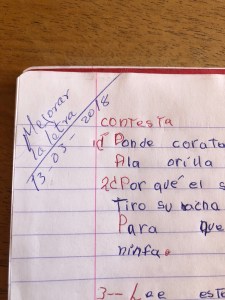 Mejorar
la letra
13-03-2018
contesta
1 Donde corata
Ala orilla
2¿Por qué el s
Tiro su hacha
Para que
ninfa.
3-- Lae este